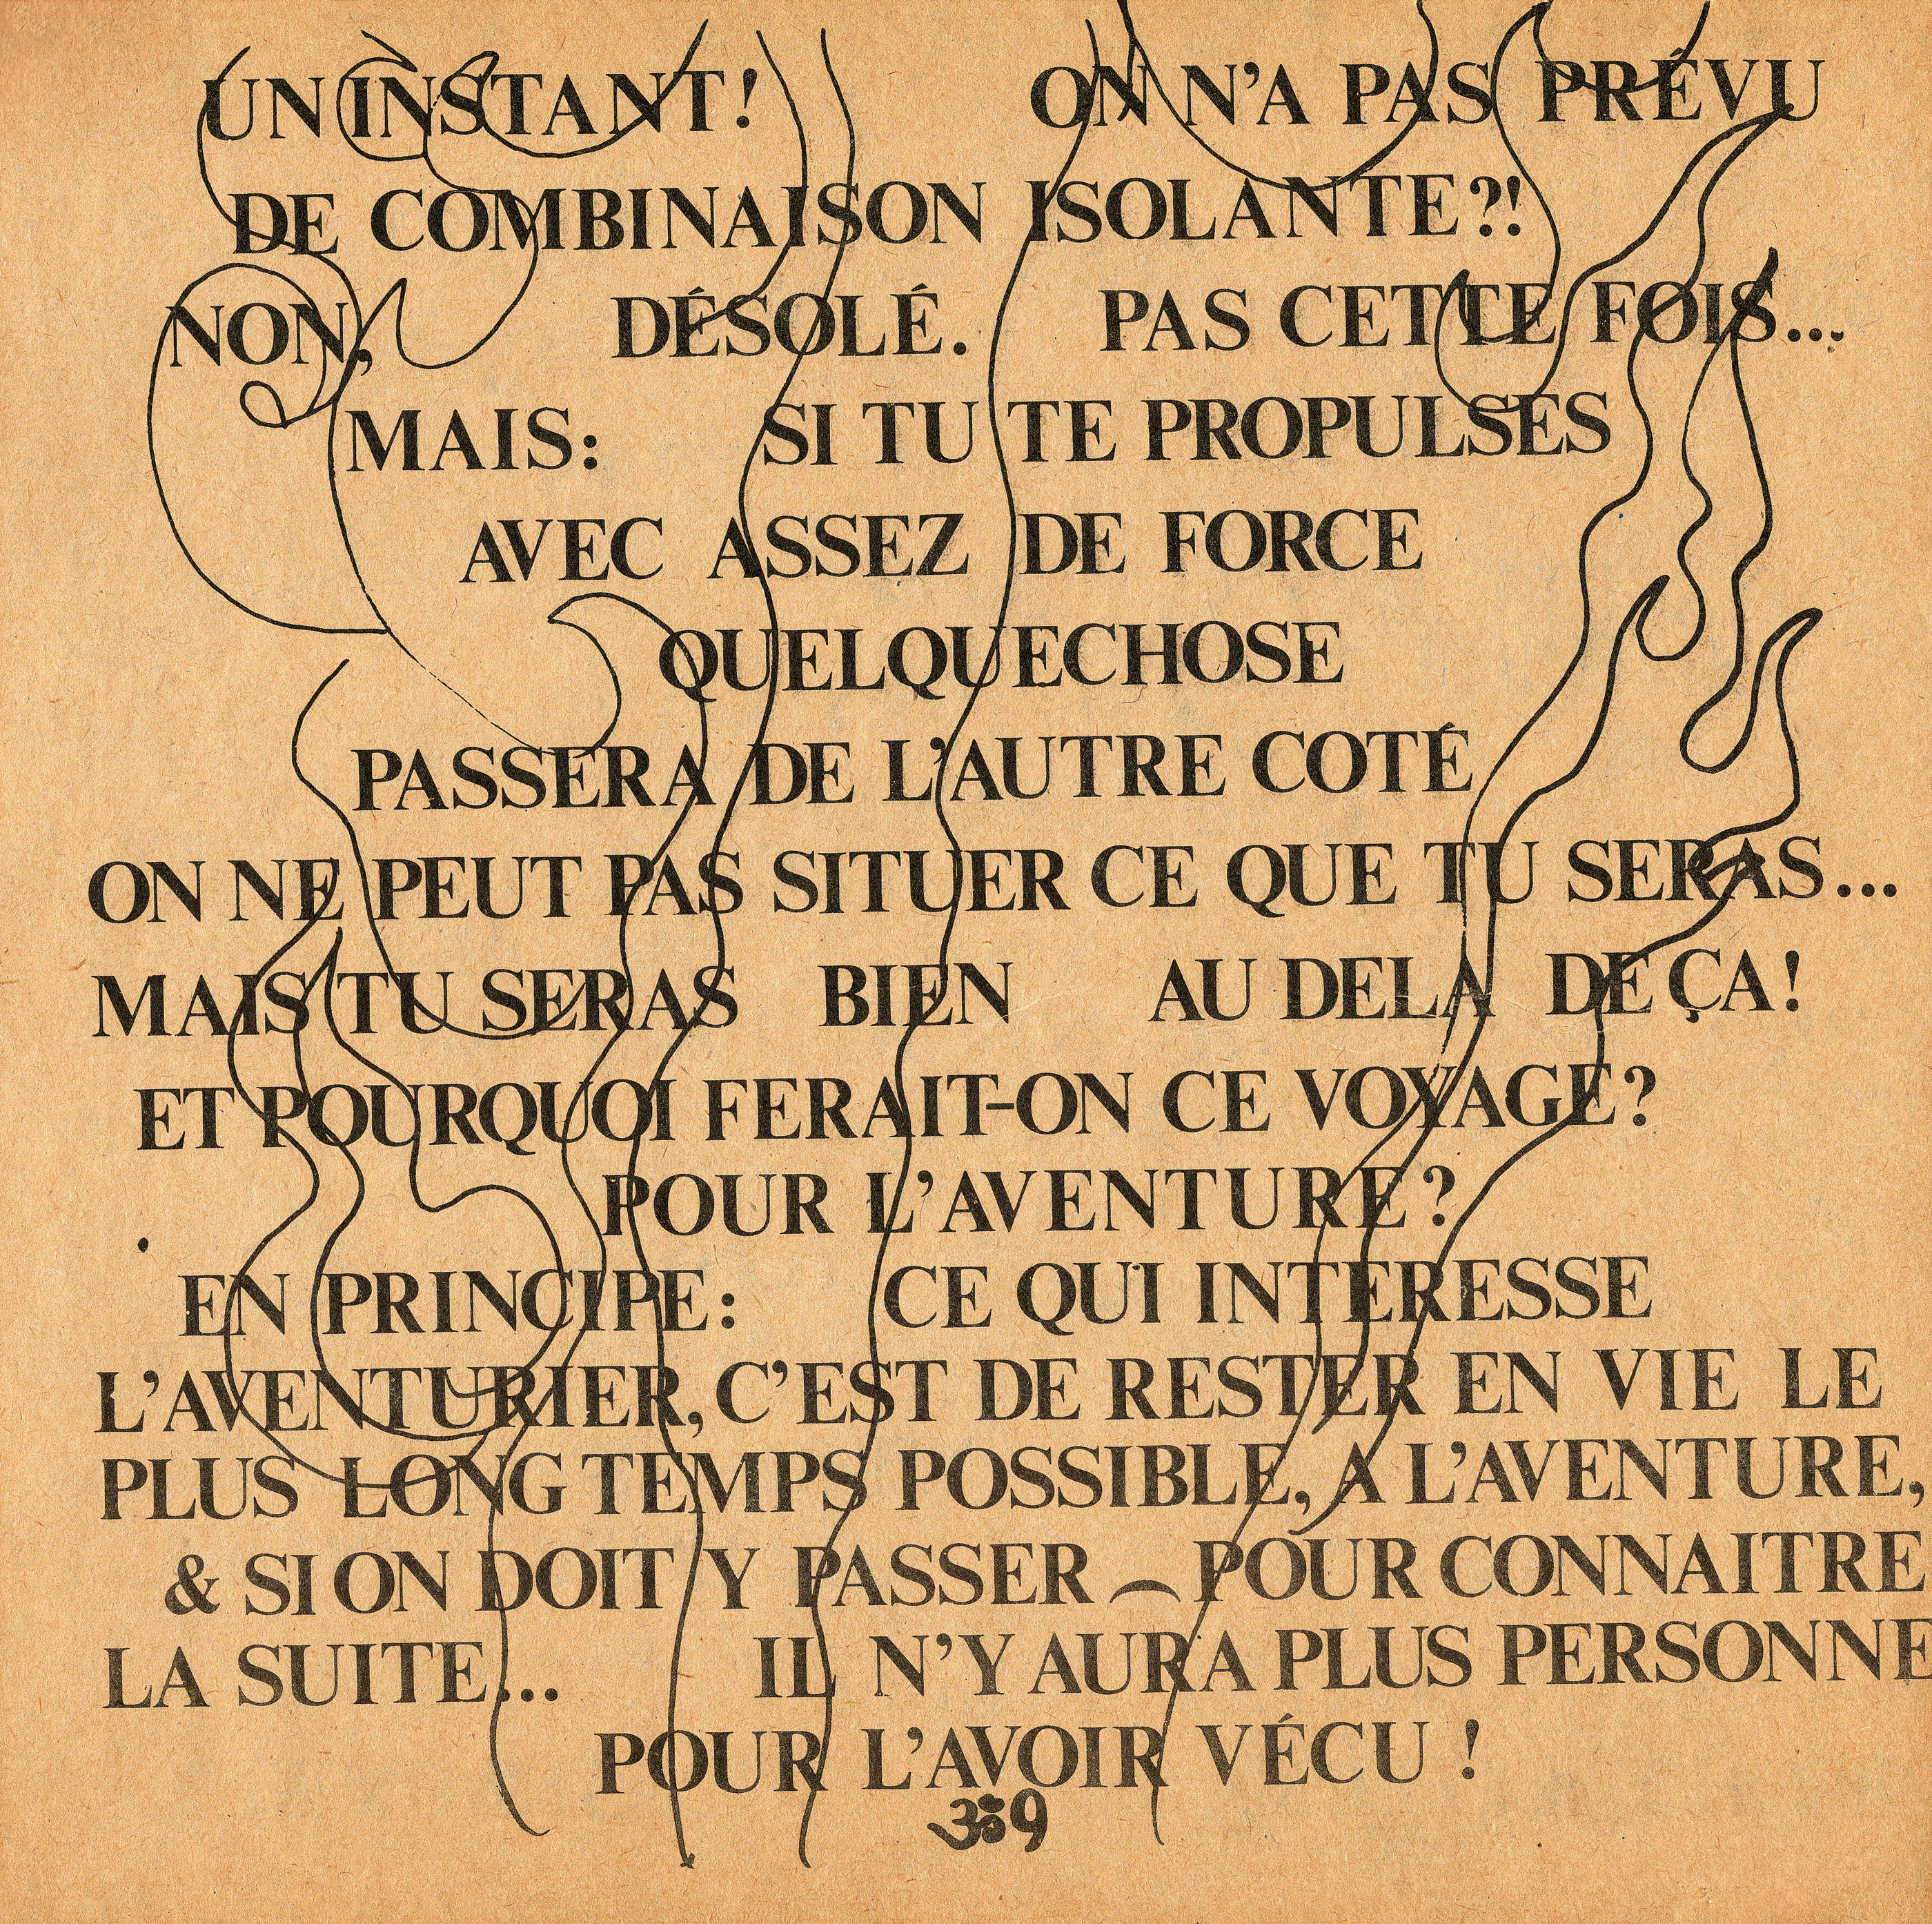 UN INSTANT! ON N'A PAS PRÉVU
DE COMBINAISON ISOLANTE?!
NON, DÉSOLÉ. PAS CETTE FOIS...
MAIS: SI TU TE PROPULSES
AVEC ASSEZ DE FORCE
QUELQUECHOSE
PASSERA DE L'AUTRE COTÉ
ON NE PEUT PAS SITUER CE QUE TU SERAS...
MAIS TU SERAS BIEN AU DELA DE ÇA!
ET POURQUOI FERAIT-ON CE VOYAGE?
POUR L'AVENTURE?
EN PRINCIPE: CE QUI INTERESSE
L'AVENTURIER, C'EST DE RESTER EN VIE LE
PLUS LONG TEMPS POSSIBLE, A L'AVENTURE,
& SI ON DOIT Y PASSER ⁓ POUR CONNAITRE
LA SUITE... IL N'Y AURA PLUS PERSONNE
POUR L'AVOIR VÉCU !
ॐ9